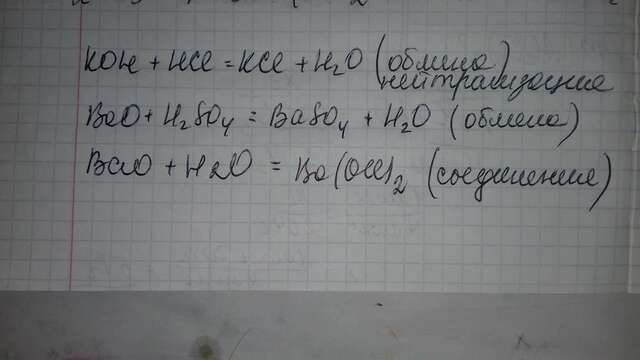 KOH + HCl = KCl + H₂O (обмена)
нейтрализация
BaO + H₂SO₄ = BaSO₄ + H₂O (обмена)
BaO + H₂O = Ba(OH)₂ (соединение)